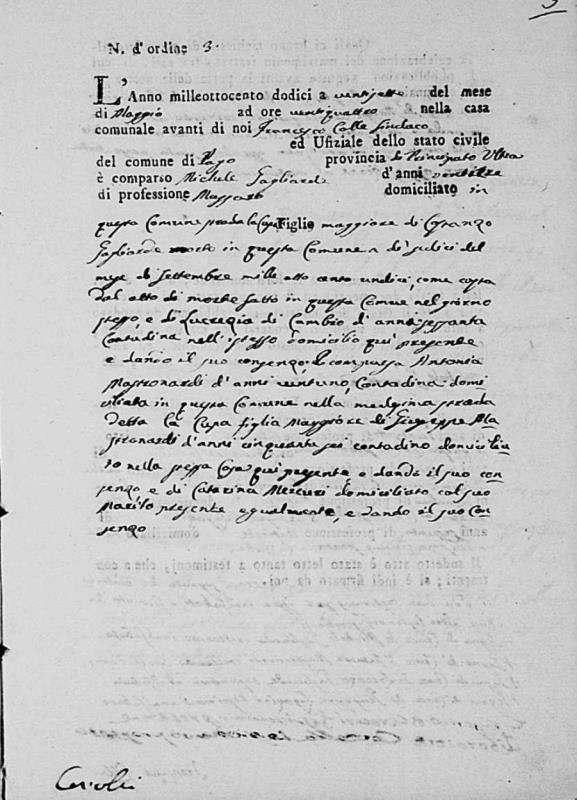 3
N. d'ordine 3.
L'Anno milleottocento dodici a ventisette del mese
di Maggio ad ore ventiquattro nella casa
comunale avanti di noi Francesco Colle Sindaco
ed Ufiziale dello stato civile
del comune di Pago provincia di Principato Ultra
è comparso Michele Gagliarde d'anni ventitre
di professione Massaro domiciliato in
questa Comune strada la Casa Figlio maggiore di Costanzo
Gagliarde morto in questa Comune a di sedici del
mese di Settembre mille otto cento undici, come costa
dal atto di morte fatto in questa Comune nel giorno
stesso, e di Lucrezia di Cambio d'anni sessanta
Contadina nell'istesso domicilio qui presente
e dando il suo consenzo; è comparsa Antonia
Mastronardi d'anni ventuno, Contadina domi
ciliata in questa Comune nella medesima strada
detta la Casa figlia Maggiore di Giuseppe Ma
stronardi d'anni cinquanta sei contadino domicilia
to nella stessa Casa qui presente e dando il suo con
senzo, e di Catarina Mercuri domiciliata col suo
Marito presente egualmente, e dando il suo Con
senzo